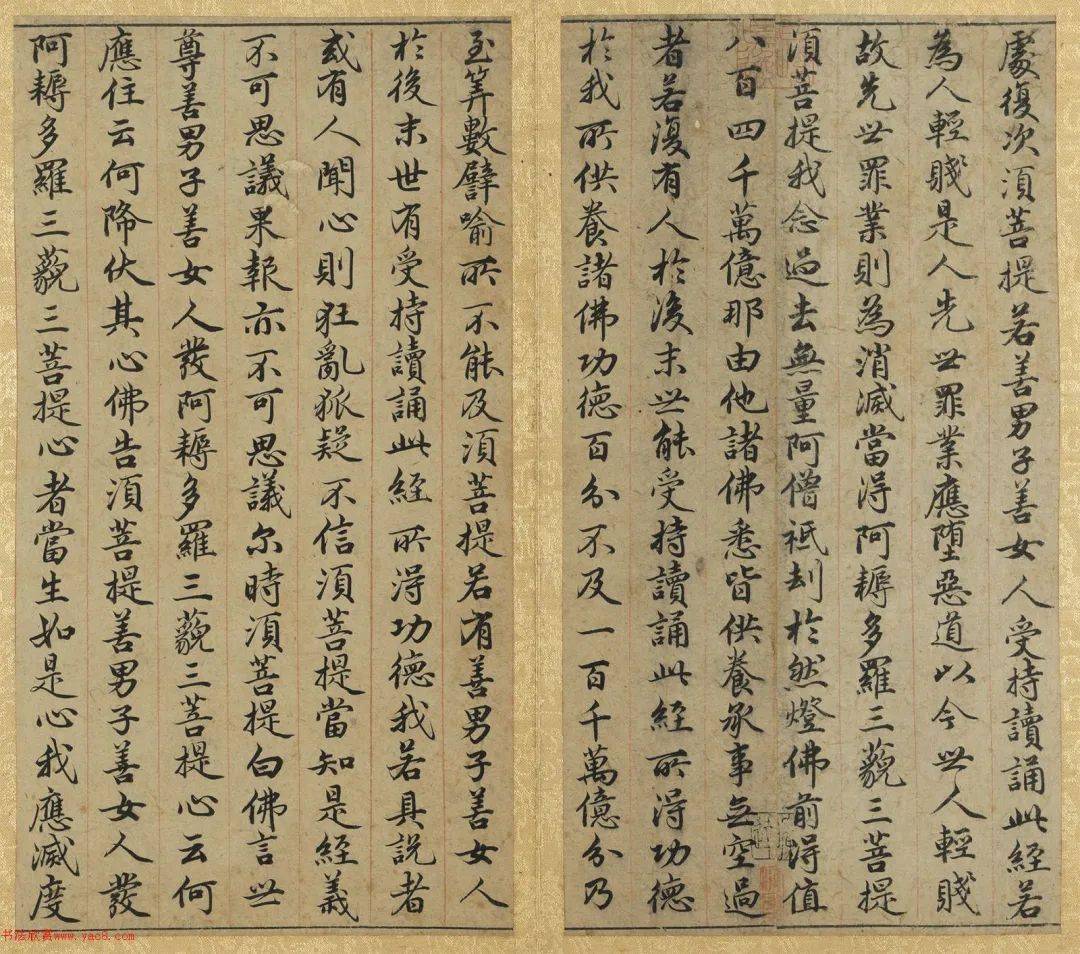 處復次須菩提若善男子善女人受持讀誦此經若
為人輕賤是人先世罪業應墮惡道以今世人輕賤
故先世罪業則為消滅當得阿耨多羅三藐三菩提
須菩提我念過去無量阿僧祇劫於然燈佛前得值
八百四千萬億那由他諸佛悉皆供養承事無空過
者若復有人於後末世能受持讀誦此經所得功德
於我所供養諸佛功德百分不及一百千萬億分乃
至筭數譬喻所不能及須菩提若有善男子善女人
於後末世有受持讀誦此經所得功德我若具說者
或有人聞心則狂亂狐疑不信須菩提當知是經義
不可思議果報亦不可思議尔時須菩提白佛言世
尊善男子善女人發阿耨多羅三藐三菩提心云何
應住云何降伏其心佛告須菩提善男子善女人發
阿耨多羅三藐三菩提心者當生如是心我應滅度
书法欣赏www.yac8.com